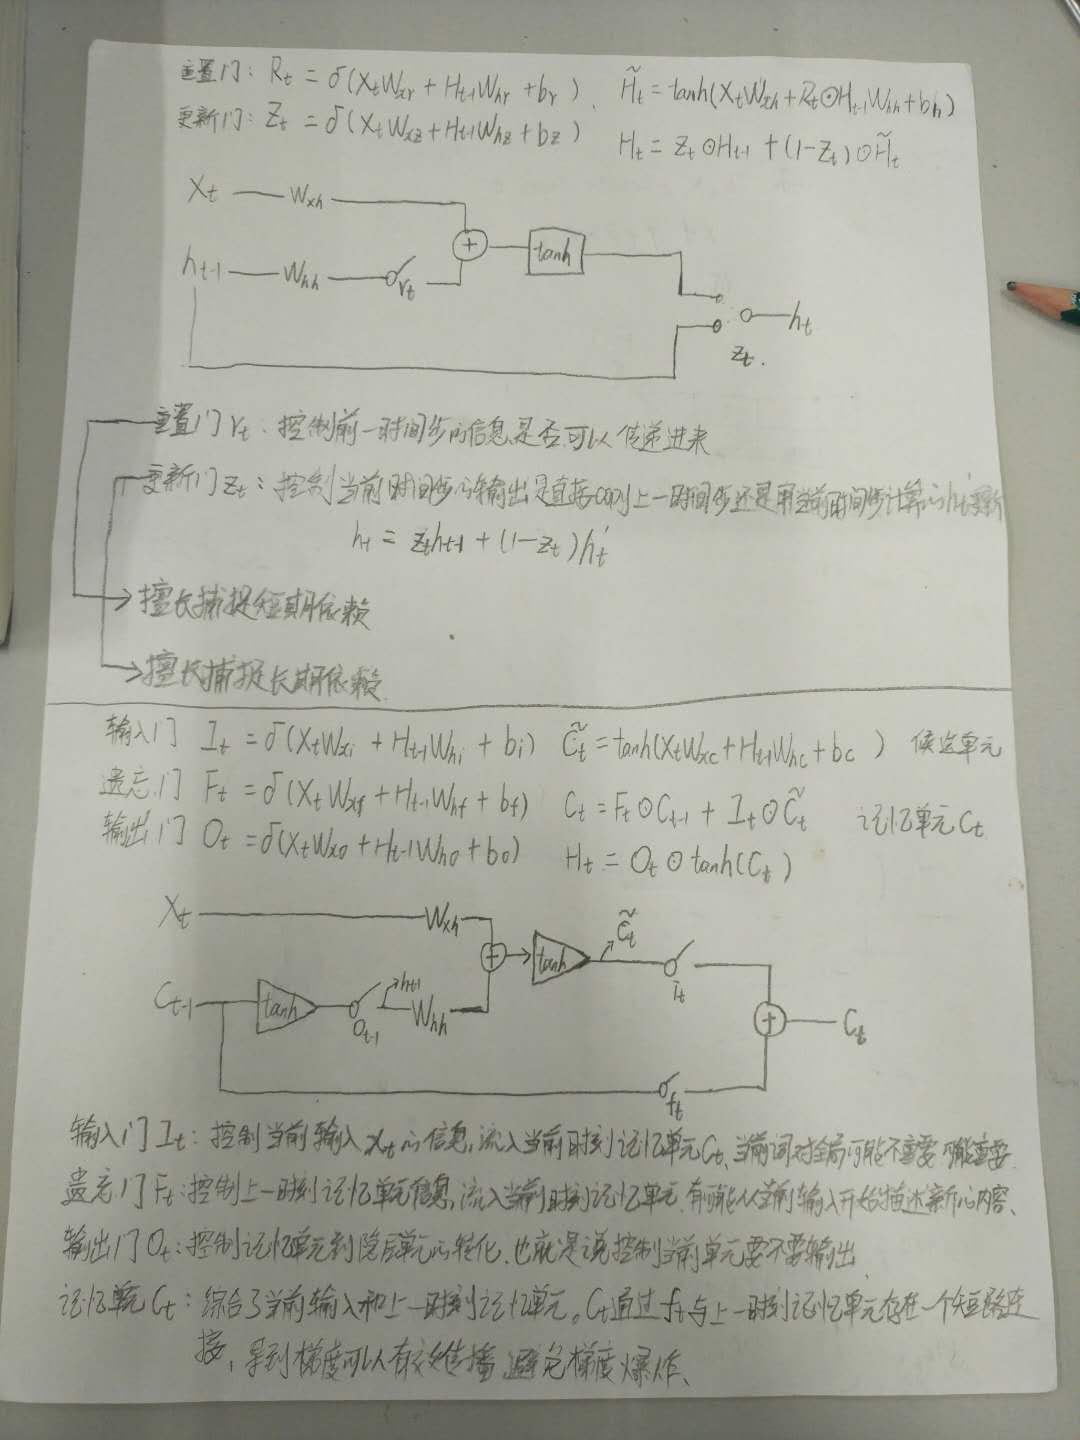 重置门: Rt = σ(XtWxr + Ht-1Whr + br). H̃t = tanh(XtWxh + Rt⊙Ht-1Whh + bh)
更新门: Zt = σ(XtWxz + Ht-1Whz + bz) Ht = Zt⊙Ht-1 + (1-Zt)⊙H̃t
Xt Wxh
+ tanh
ht-1 Whh rt
ht
zt.
重置门rt: 控制前一时间步的信息是否可以传递进来
更新门zt: 控制当前时间步的输出是直接copy上一时间步还是用当前时间步计算的ht'更新
ht = ztht-1 + (1-zt)ht'
擅长捕捉短期依赖
擅长捕捉长期依赖.
输入门 It = σ(XtWxi + Ht-1Whi + bi) C̃t = tanh(XtWxc + Ht-1Whc + bc) 候选单元
遗忘门 Ft = σ(XtWxf + Ht-1Whf + bf) Ct = Ft⊙Ct-1 + It⊙C̃t 记忆单元Ct
输出门 Ot = σ(XtWxo + Ht-1Who + bo) Ht = Ot⊙tanh(Ct)
Xt Wxh C̃t
+ tanh
It
Ct-1 tanh Ot-1 ht-1 Whh + Ct
ft
输入门It: 控制当前输入xt的信息,流入当前时刻记忆单元Ct、当前词对全局可能不重要 可能重要
遗忘门Ft: 控制上一时刻记忆单元信息,流入当前时刻记忆单元.有可能从当前输入开始描述新的内容、
输出门Ot: 控制记忆单元到隐层单元的转化.也就是说控制当前单元要不要输出
记忆单元Ct: 综合了当前输入和上一时刻记忆单元。Ct通过ft与上一时刻记忆单元存在一个短路连
接,导到梯度可以有效传播,避免梯度爆炸、